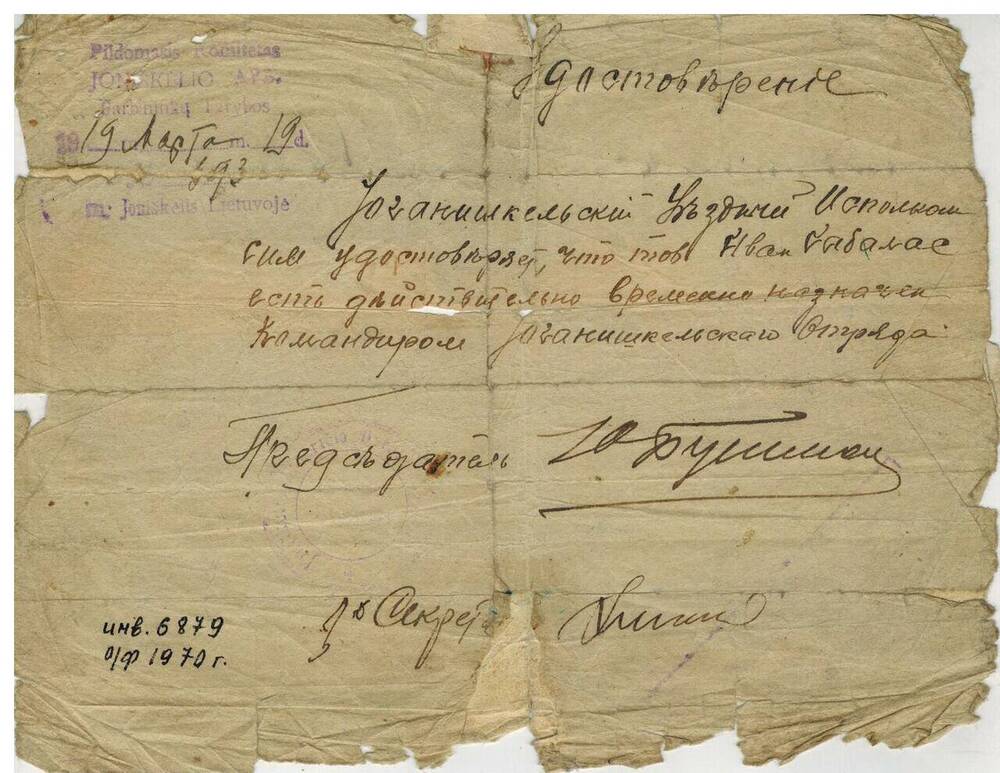 Pildomasis Komitetas
JONIŠKELIO APS.
Darbininkų Tarybos
19 19 Марта m. 19 d.
193
m. Joniškelis Lietuvoje
Удостовѣреніе
Іоганишкельский Уѣздный Исполком
сим удостовѣряет, что тов Иван
есть дѣйствительно временно назначен
Командиром Іоганишкельскаго Отряда
Предсѣдатель Ю
Секрет
инв. 6879
о/ф 1970 г.